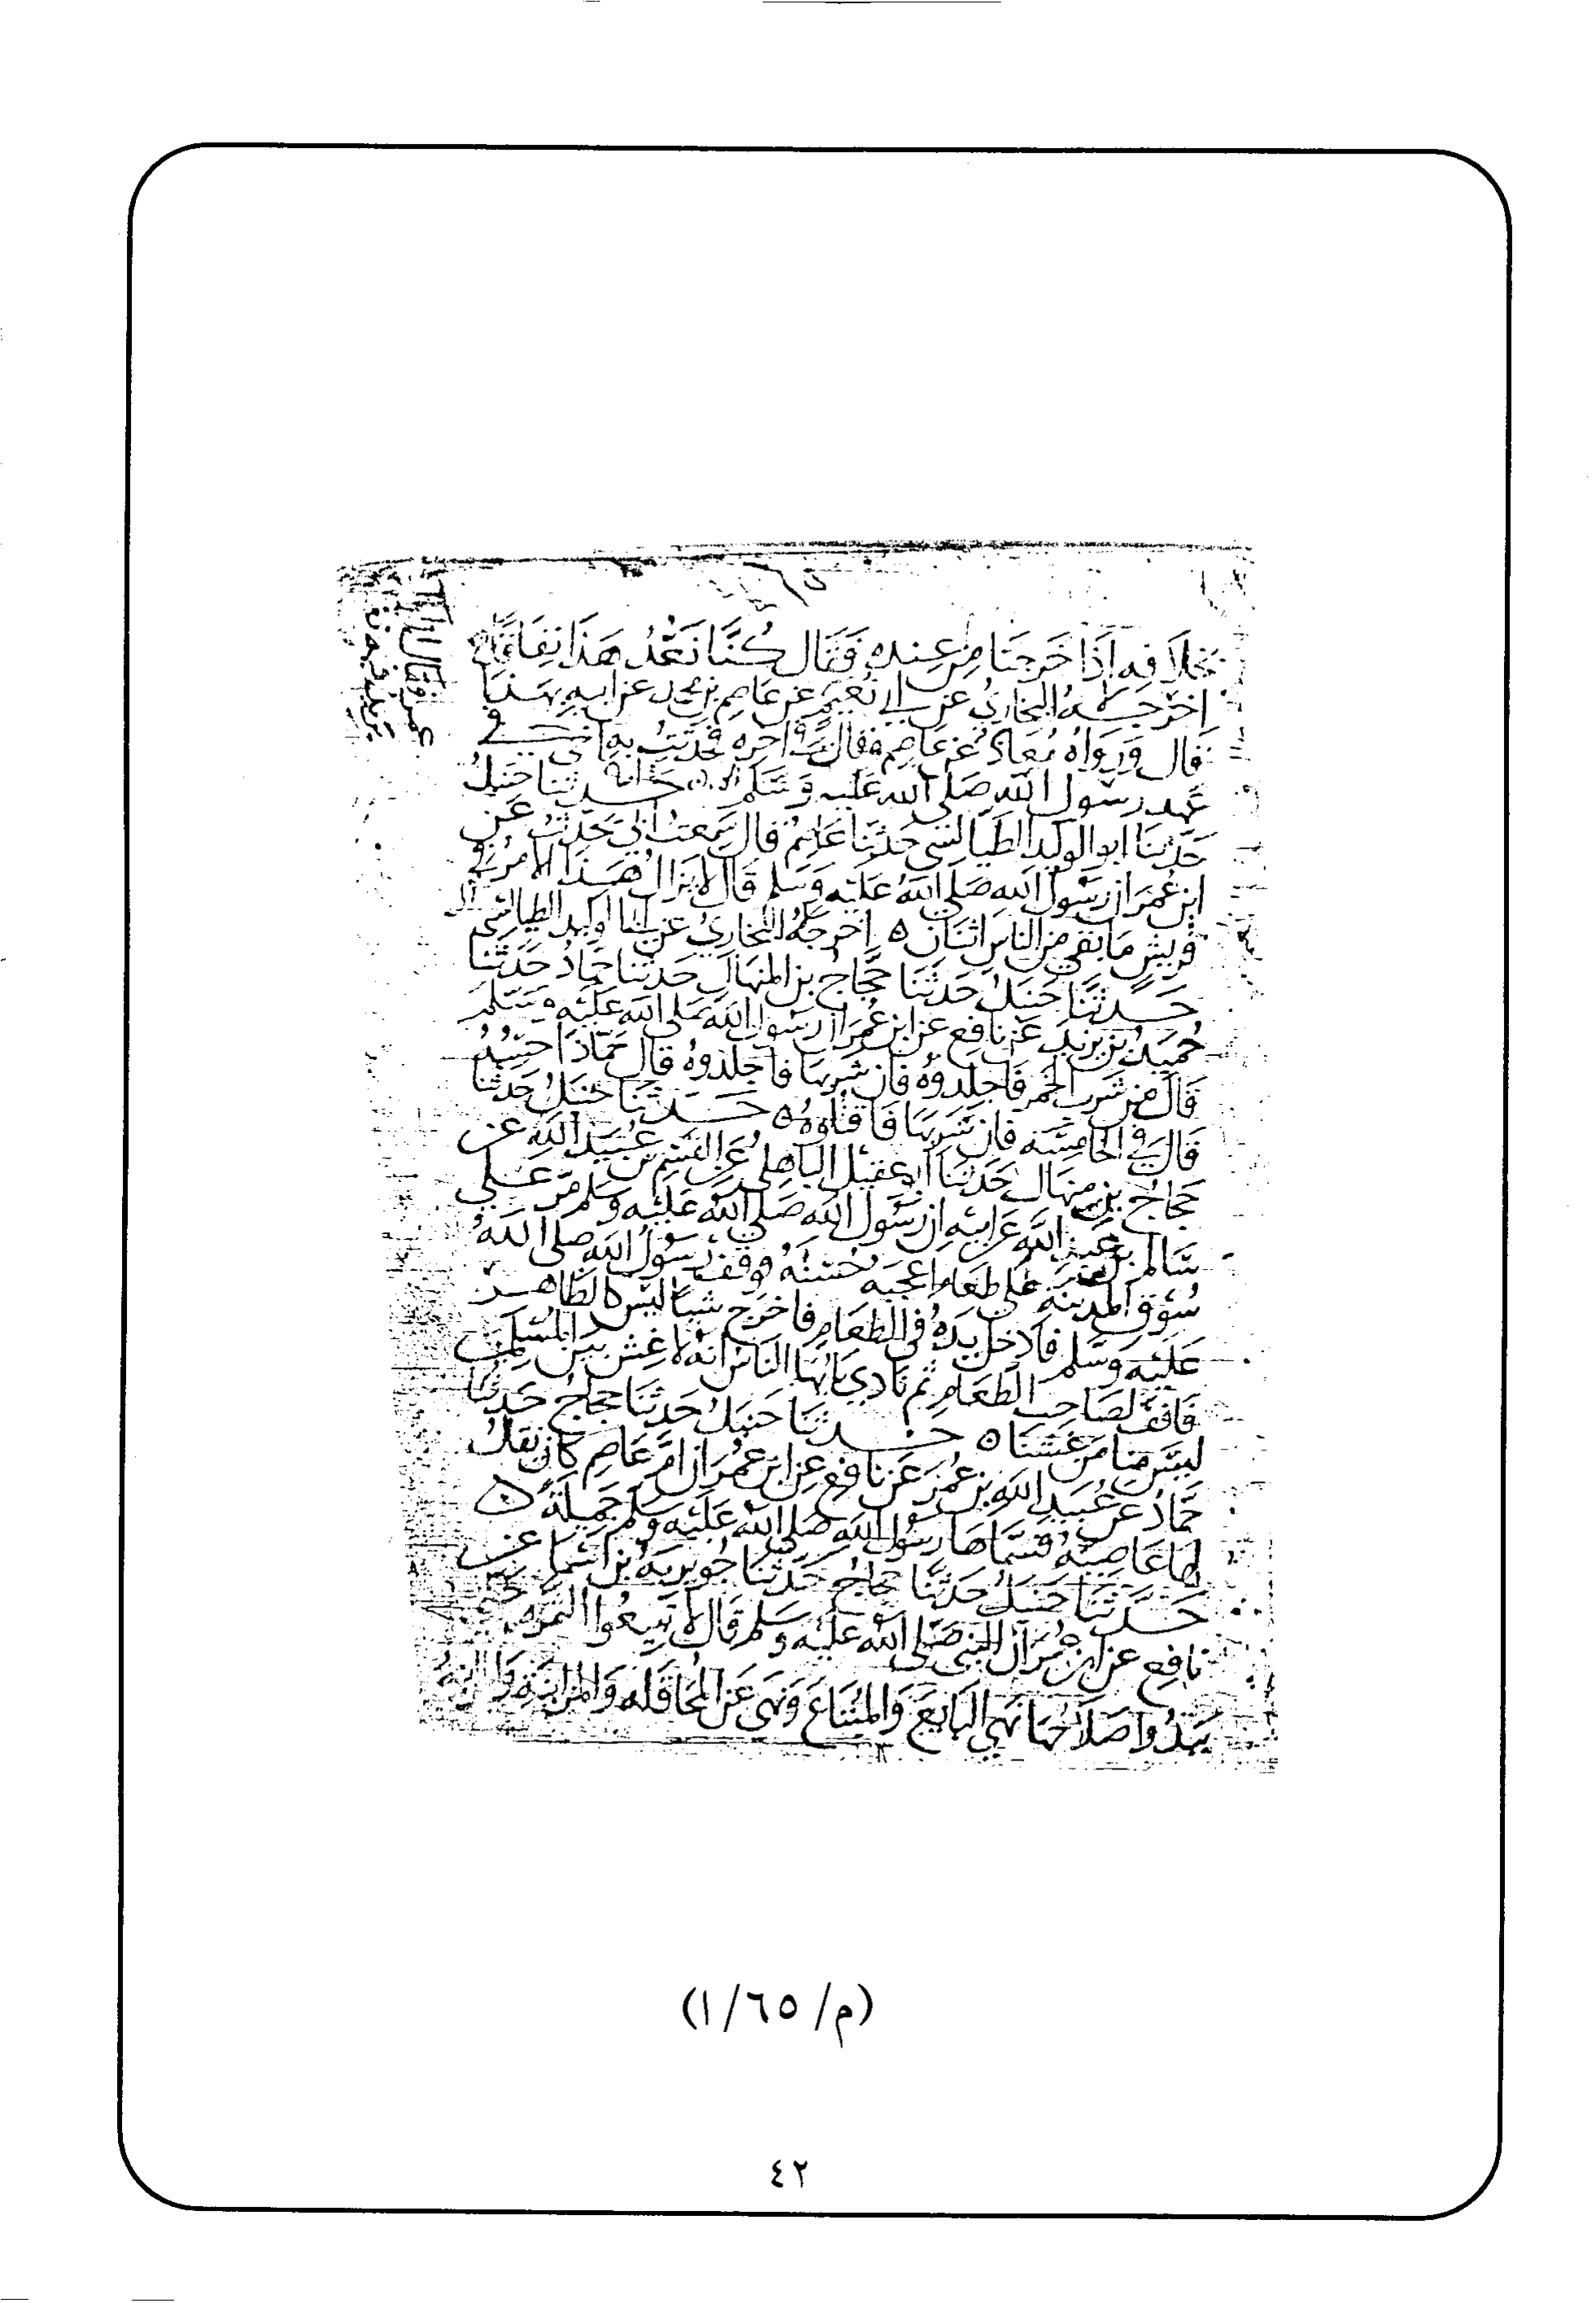 بخلافه اذا خرجنا من عنده فَقَال كُنَّا نَعُدُّ هَذَا نِفَاقًا
اخرجه البخاري عن ابي نعيم عن عاصم بن محمد عن ابيه بهذا
قال ورواه معاذ عن عاصم فقال في اخره فحدثت به اخي
عهد رسول الله صلى الله عليه وسلم حدثنا حنبل
حدثنا ابو الوليد الطيالسي حدثنا عاصم قال سمعت ابي يحدث عن
ابن عمر ان رسول الله صلي الله عليه وسلم قال لا يزال هذا الامر في
قريش ما بقي من الناس اثنان ٥ اخرجه البخاري عن الطيالسي
حدثنا حنبل حدثنا حجاج بن المنهال حدثنا حماد حدثنا
حميد بن يزيد عن نافع عن ابن عمر ان رسول الله صلى الله عليه وسلم
قال من شرب الخمر فاجلدوه فان شربها فاجلدوه قال حماد احسبه
قال في الخامسه فان شربها فاقتلوه ٥ حدثنا حنبل حدثنا
حجاج بن منهال حدثنا ابو عقيل الباهلي عن القسم بن عبيد الله عن
سالم بن عبد الله عن ابيه ان رسول الله صلي الله عليه وسلم مر علي
سوق المدينة علي طعام اعجبه حسنه فوقف رسول الله صلى الله
عليه وسلم فادخل يده في الطعام فاخرج شيا ليس كالظاهر
فافف لصاحب الطعام ثم نادي يا ايها الناس انه لا غش بين المسلمين
ليس منا من غشنا ٥ حدثنا حنبل حدثنا حجاج حدثنا
حماد عن عبيد الله بن عمر عن نافع عن ابن عمر ان ام عاصم كان يقال
لها عاصيه فسماها رسول الله صلى الله عليه وسلم جميلة ٥
حدثنا حنبل حدثنا حجاج حدثنا جويرية بن اسما عن
نافع عن ابن عمر ان النبي صلى الله عليه وسلم قال لا تبيعوا الثمره حتى
يبدوا صلاحها نهي البايع والمبتاع ونهى عن المحاقله والمزابنة
(م/ ٦٥/ ١)
٤٢